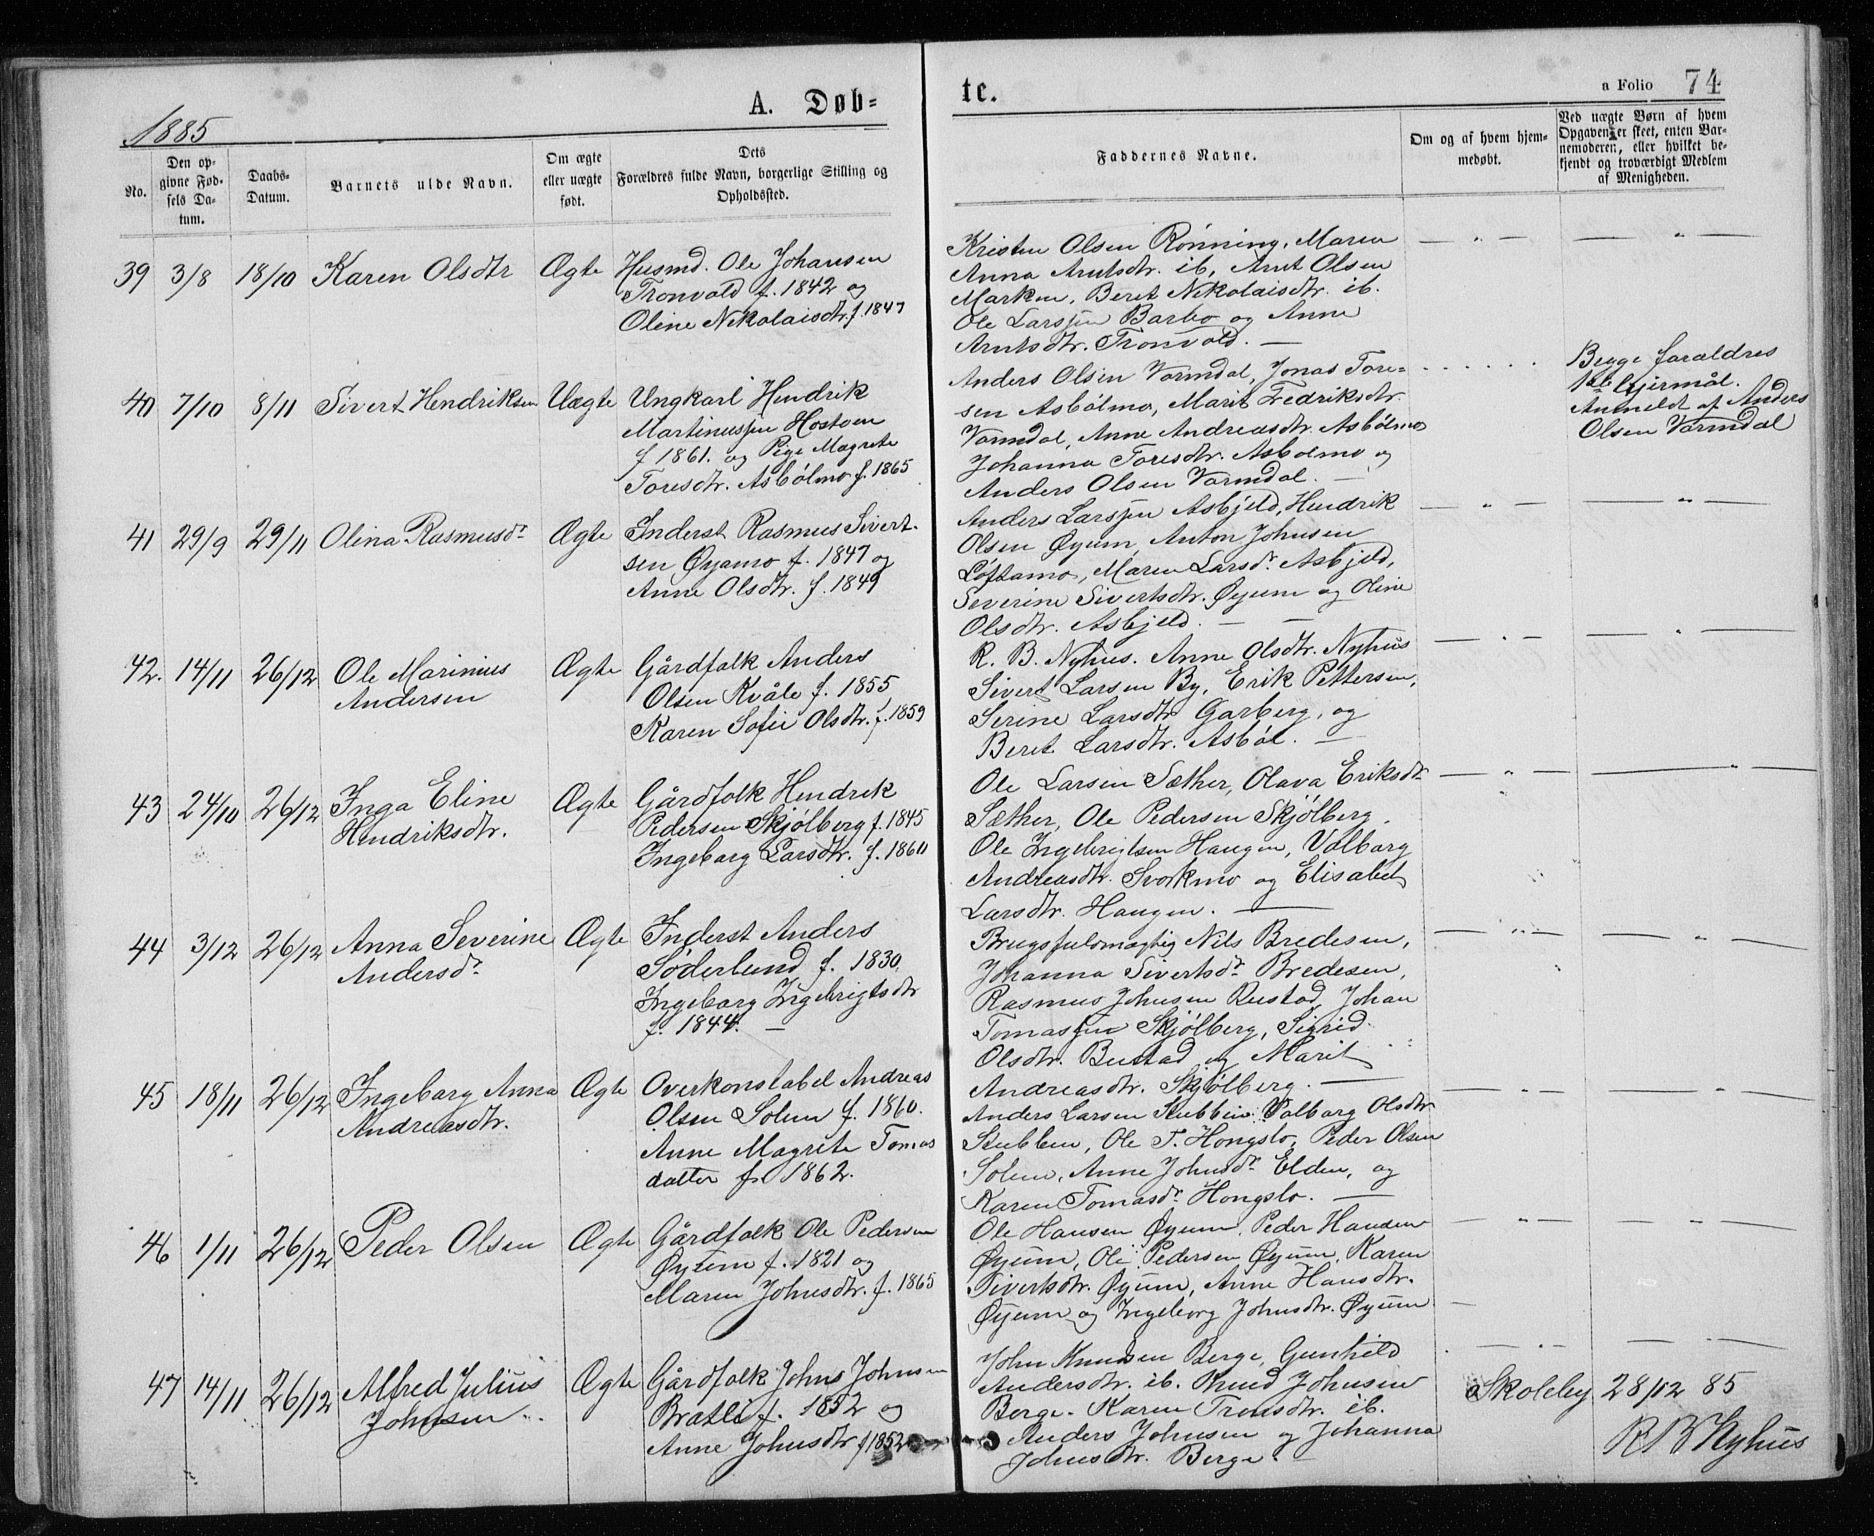 1885
A. Døb-
te.
a Folio 74
No.
Den op-
givne Fød-
sels Da-
tum.
Daabs-
Datum.
Barnets fulde Navn.
Om ægte
eller uægte
født.
Dets
Forældres fulde Navn, borgerlige Stilling og
Opholdssted.
Faddernes Navne.
Om og af hvem hjem-
medøbt.
Ved uægte Børn af hvem
Opgaven er skeet, enten Bar-
nemoderen, eller hvilket be-
kjendt og troværdigt Medlem
af Menigheden.
39 3/8 18/10 Karen Olsdtr Ægte
Husmd. Ole Johansen
Tronvold f. 1842 og
Oline Nikolaisdtr. f. 1847
Kristen Olsen Rønning, Maren
Anna Arntsdtr. ib, Arnt Olsen
Marken, Beret Nikolaisdtr. ib.
Ole Larssen Barbo og Anne
Arntsdtr. Tronvold. —
— " —
— " —
40 7/10 8/11 Sivert Hendriksen Uægte
Ungkarl Hendrik
Martinussen Hostoen
f 1861. og Pige Magrete
Toresdtr. Asbölmo f. 1865
Anders Olsen Vormdal, Jonas Tore-
sen Asbölmo, Marit Fedriksdtr.
Vormdal, Anne Andreasdtr. Asbölmo
Johanna Toresdtr. Asbolmo og
Anders Olsen Vormdal. —
Begge foraldres
1ste lejermål.
Anmeldt af Anders
Olsen Vormdal
41 29/9 29/11 Olina Rasmusdr Ægte
Inderst Rasmus Sivert-
sen Øyamo f. 1847 og
Anne Olsdtr. f. 1849
Anders Larssen Asbjeld, Hendrik
Olsen Øyum, Anton Johnsen
Löftamo, Maren Larsdr. Asbjeld,
Severine Sivertsdtr. Øyum og Oline
Olsdtr. Asbjeld. — —
— " —
— " —
42. 14/11 26/12 Ole Marinius
Andersen
Ægte
Gårdfolk Anders
Olsen Kvåle f. 1855
Karen Sofie Olsdtr. f. 1859
R. B. Nyhus. Anne Olsdtr. Nyhus
Sivert Larsen By, Erik Pettersen,
Serine Larsdtr Garberg, og
Beret Larsdtr. Asböl. —
— " —
— " —
43 24/10 26/12 Inga Eline
Hendriksdtr.
Ægte
Gårdfolk Hendrik
Pedersen Skjölberg f. 1845
Ingeborg Larsdtr. f. 1860
Ole Larsen Sæther, Olava Eriksdtr
Sæther, Ole Pedersen Skjölberg.
Ole Ingebrigtsen Haugen, Valborg
Andreasdtr. Svorkmo og Elisabet
Larsdtr. Haugen. —
— " —
— " —
44 3/12 26/12 Anna Severine
Andersdr
Ægte
Inderst Anders
Söderlund f. 1830.
Ingeborg Ingebrigtsdtr
f. 1844. —
Brugsfuldmægtig Nils Bredesen,
Johanna Sivertsdr Bredesen,
Rasmus Johnsen Rustad, Johan
Tomassen Skjölberg, Sigrid
Olsdtr. Bustad og Marit
Andreasdtr. Skjölberg. —
— " —
— " —
45 18/11 26/12 Ingeborg Anna
Andreasdtr.
Ægte
Overkonstabel Andreas
Olsen Solem f. 1860.
Anne Magrete Tomas
datter f. 1862.
Anders Larsen Stubben. Valborg Olsdtr
Stubben, Ole T. Hongslo, Peder Olsen
Solem, Anne Johnsdr. Elden, og
Karen Tomasdr. Hongslo. —
— " —
— " —
46 1/11 26/12 Peder Olsen Ægte
Gårdfolk Ole Pedersen
Øyum f. 1821 og
Maren Johnsdtr. f. 1865
Ole Hansen Øyum, Peder Hansen
Øyum, Ole Pedersen Øyum, Karen
Sivertsdtr. Øyum, Anne Hansdtr.
Øyum og Ingeborg Johnsdtr. Øyum —
— " —
— " —
47 14/11 26/12 Alfred Julius
Johnsen
Ægte
Gårdfolk Johns Johnsen
Bratli f. 1852 og
Anne Johnsdtr f 1852
John Knudsen Berge, Gunhild
Andersdtr. ib. Knud Johnsen
Berge. Karen Tronsdtr. ib.
Anders Johnsen og Johanna
Johnsdtr. Berge. —
Skoleby 28/12 85
R B Nyhus